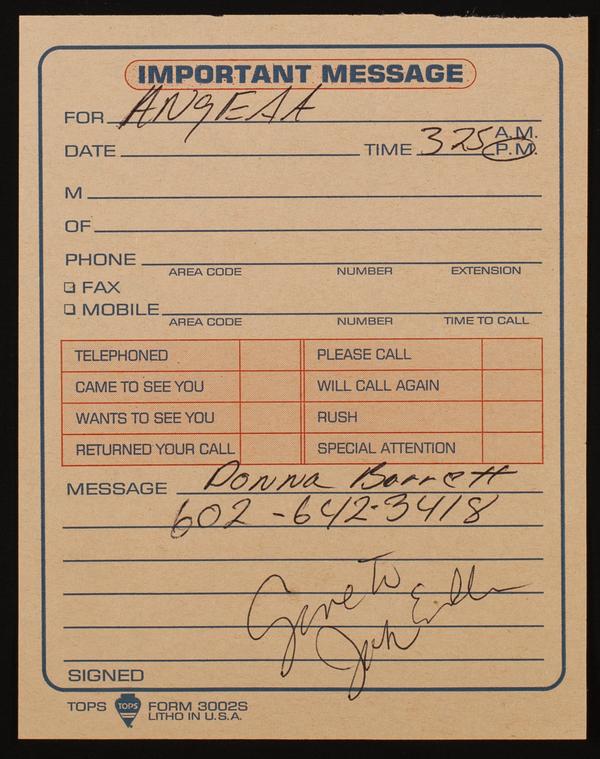 IMPORTANT MESSAGE
FOR ANGELA
DATE TIME 325 A.M.
P.M.
M
OF
PHONE
AREA CODE NUMBER EXTENSION
FAX
MOBILE
AREA CODE NUMBER TIME TO CALL
TELEPHONED PLEASE CALL
CAME TO SEE YOU WILL CALL AGAIN
WANTS TO SEE YOU RUSH
RETURNED YOUR CALL SPECIAL ATTENTION
MESSAGE Donna Barrett
602-642-3418
Gave to
John
SIGNED
TOPS TOPS FORM 3002S
LITHO IN U.S.A.